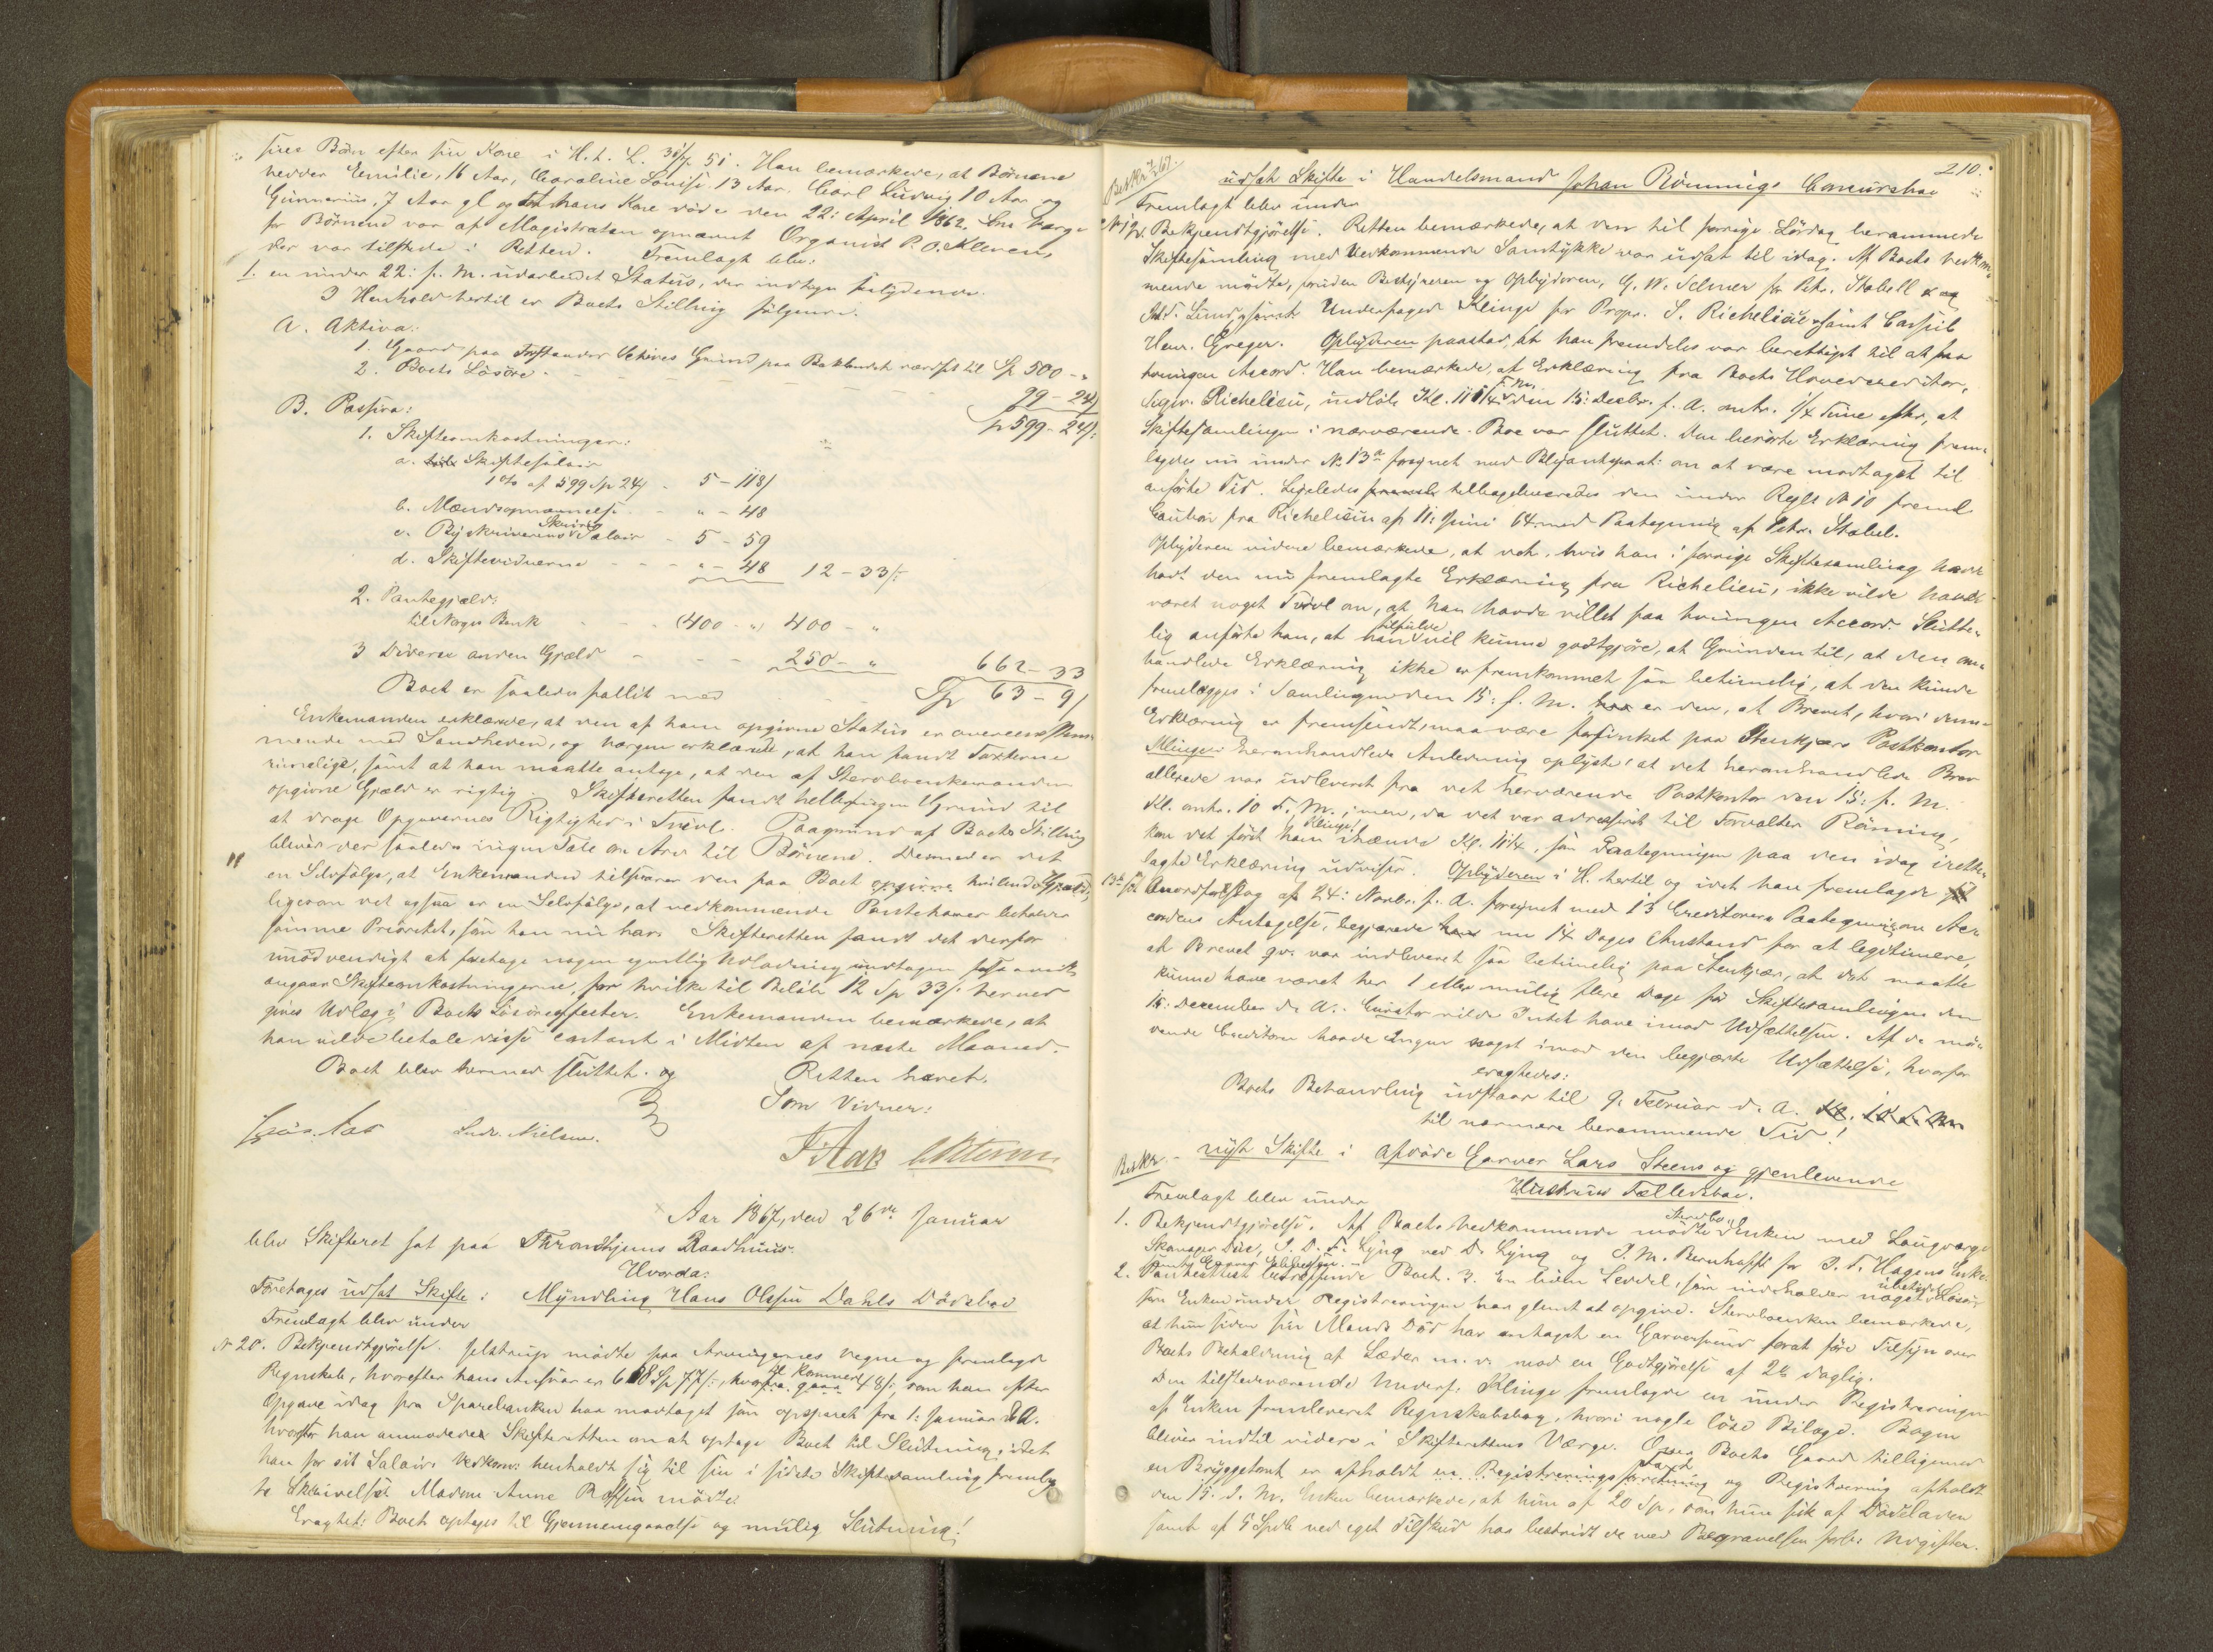 sine Børn efter sin Kone i H. t. L. 30/7 51. Han bemærkede, at Børnene
hedder Emilie, 16 Aar, Caroline Lovise 13 Aar, Carl Ludvig 10 Aar og
Gunnerius, 7 Aar gl. og at hans Kone døde den 22: April 1862. Som Værge
for Børnene var af Magistraten opnævnt Organist P. O. Kleven,
der var tilstede i Retten. Fremlagt blev:
1. en under 22: f. M. udarbeidet Status, der indtages saalydende.
I Henhold hertil er Boets Stilling følgende.
A. Aktiva:
1. Gaard paa Grund paa Baklandet værdsat til Sp 500 - "
2. Boets Løsøre - 99 - 24 ß
Sp 599 - 24 ß:
B. Passiva:
1. Skifteomkostninger:
a. Skiftesalair
1 % af 599 Sp 24 ß - 5 - 118 ß
b. Mændsopnævnelse - " - 48
c. Byskriverens Skriver Salair - 5 - 59
d. Skiftevidnerne - - - " - 48 12 - 33 ß:
2. Pantegjæld:
til Norges Bank (400 - ") 400 - "
3 Diverse anden Gjæld - - - 250 - " 662 - 33
Boet er saaledes fallit med Sp 63 - 9 ß
Enkemanden erklærede, at den af ham opgivne Status er overeensstem-
mende med Sandheden, og Værgen erklærede, at han fandt Taxterne
rimelige, samt at han maatte antage, at den af Stervboenkemanden
opgivne Gjæld er rigtig. Skifteretten fandt heller ingen Grund til
at drage Opgavernes Rigtighed i Tvivl. Paagrund af Boets Stilling
bliver der saaledes ingen Tale om Arv til Børnene. Dermed er det
en Selvfølge, at Enkemanden tilsvarer den paa Boet hvilende Gjæld,
ligesom det ogsaa er en Selvfølge, at vedkommende Panthaver beholder
samme Prioritet, som han nu har. Skifteretten fandt det derfor
unødvendigt at foretage nogen egentlig Udlodning undtagen forsaavidt
angaar Skifteomkostningerne, for hvilke til Beløb 12 Sp 33 ß. herved
gives Udlæg i Boets Løsøreeffecter. Enkemanden bemærkede, at
han vilde betale disse contant i Midten af næste Maaned.
Boet blev hermed sluttet. og Retten hævet.
Som Vidner:
Ludv. Nielsen.
Aar 1867, den 26de Januar
blev Skifteret sat paa Throndhjems Raadhuus.
Hvorda:
Foretages udsat Skifte i Myndling Hans Olsen Dahls Dødsboe
Fremlagt blev under
N 20. Bekjendtgjørelse. mødte paa Arvingernes Vegne og fremlagde
Regnskab, hvorefter hans Ansvar er Sp 77 ß:, hvortil kommer 48 ß, som han efter
Opgave idag fra Sparebanken har modtaget som opsparet fra 1: Januar d. A.
hvorfor han anmodede Skifteretten om at optage Boet til Slutning, idet
han for sit Salair Vedkom: henholdt sig til sin i sidste Skiftesamling fremlag-
te Skrivelse. Madme Anne mødte
Eragtet: Boet optages til Gjennemgaaelse og mulig Slutning!
210.
udsat Skifte i Handelsmand Johan Rønnings Concursboe
Fremlagt blev under
Bekjendtgjørelse. Retten bemærkede, at den til forrige Lørdag berammede
Skiftesamling med Vedkommende Samtykke var udsat til idag. Af Boets Vedkom-
mende mødte, foruden Bestyreren og Opbyderen, G. W. Selmer for Pehr. Stabell og
Lund, samt Underfoged Klinge for Propr. S. Richelieu samt
Henr. Greger. Opbyderen paastod, at han fremdeles var berettiget til at faa
tvungen Accord. Han bemærkede, at Erklæring fra Boets Hovedcreditor,
Richelieu, indløb Kl. 11 1/4 F. M. den 15: Decbr. f. A. omtr. 1/4 Time efter, at
Skiftesamlingen i nærværende Boe var sluttet. Den berørte Erklæring frem-
lagdes nu under N. 13a forsynet med Blyantspaat: om at være modtaget til
anførte Tid. Ligeledes tilbageleveredes den under Regst. N 10 freml.
Caution fra Richelieu af 11: Juni 64 med Paategning af Pehr. Stabel.
Opbyderen videre bemærkede, at det, hvis han i forrige Skiftesamling havde
havt den nu fremlagte Erklæring fra Richelieu, ikke vilde havde
været noget Tvivl om, at han havde villet faa tvungen Accord. Slutte-
lig anførte han, at han tilfulde vil kunne godtgjøre, at Grunden til, at den om-
handlede Erklæring ikke er fremkommet saa betimelig, at den kunde
fremlægges i Samlingen den 15: f. M. er den, at Brevet, hvori denne
Erklæring er fremsendt, maa være forsinket paa Stenkjærs Postkontor
Klinge i heromhandlede Anledning oplyste, at det heromhandlede Brev
allerede var udleveret fra det herværende Postkontor den 15: f. M.
Kl. omtr. 10 F. M.; men, da det var adresseret til Forvalter Rønning,
kom det først ham Klinge ihænde Kl. 11 1/4, som Paategningen paa den idag irette-
lagte Erklæring udviser. Opbyderen i H. hertil og idet han fremlagde
Accordforslag af 24: Novbr. f. A. forsynet med 13 Creditorers Paategning om Ac-
cordens Antagelse, begjærede nu 14 Dages Anstand for at legitimere,
at Brevet qv. var indleveret saa betimelig paa Stenkjær, at det maatte
kunne have været her 1 eller mulig flere Dage før Skiftesamlingen den
15: December d. A. Curator vilde Intet have imod Udsættelsen. Af de mø-
dende Creditorer havde Ingen noget imod den begjærte Udsættelse, hvorfor
eragtedes:
Boets Behandling udstaar til 9. Februar d. A. Kl. 10 F. M.
til nærmere berammende Tid!
Beskr. - nyt Skifte i afdøde Garver Lars Steens og gjenlevende
Hustrues Fælledsboe.
Fremlagt blev under
1. Bekjendtgjørelse. Af Boets Vedkommende mødte Stervbo Enken med Laugværge
Skomager Due, S. D. F. Lyng ved D. Lyng og J. M. Bernhoft for J. F. Hagens Enke.
2. Pantattest betræffende Boet. 3. En liden Seddel, som indeholder noget ubetydl. Løsøre
som Enken under Registreringen har glemt at opgive. Stervboenken bemærkede,
at hun siden sin Mands Død har antaget en Garversvend forat føre Tilsyn over
Boets Beholdning af Læder m. v. mod en Godtgjørelse af daglig.
Den tilstedeværende Underf. Klinge fremlagde en under Registreringen
af Enken fremleveret Regnskabsbog, hvori nogle løse Bilage. Bogen
bliver indtil videre i Skifterettens Værge. Over Boets Gaard tilligemed
en Bryggetomt er afholdt en Registreringsforretning og Registrering afholdt
den 15. d. M. Enken bemærkede, at hun af 20 Sp, som hun fik af Dødeladen
samt af 5 Spd ved eget Tilskud har bestridt de ved Begravelsen forb: Udgifter.